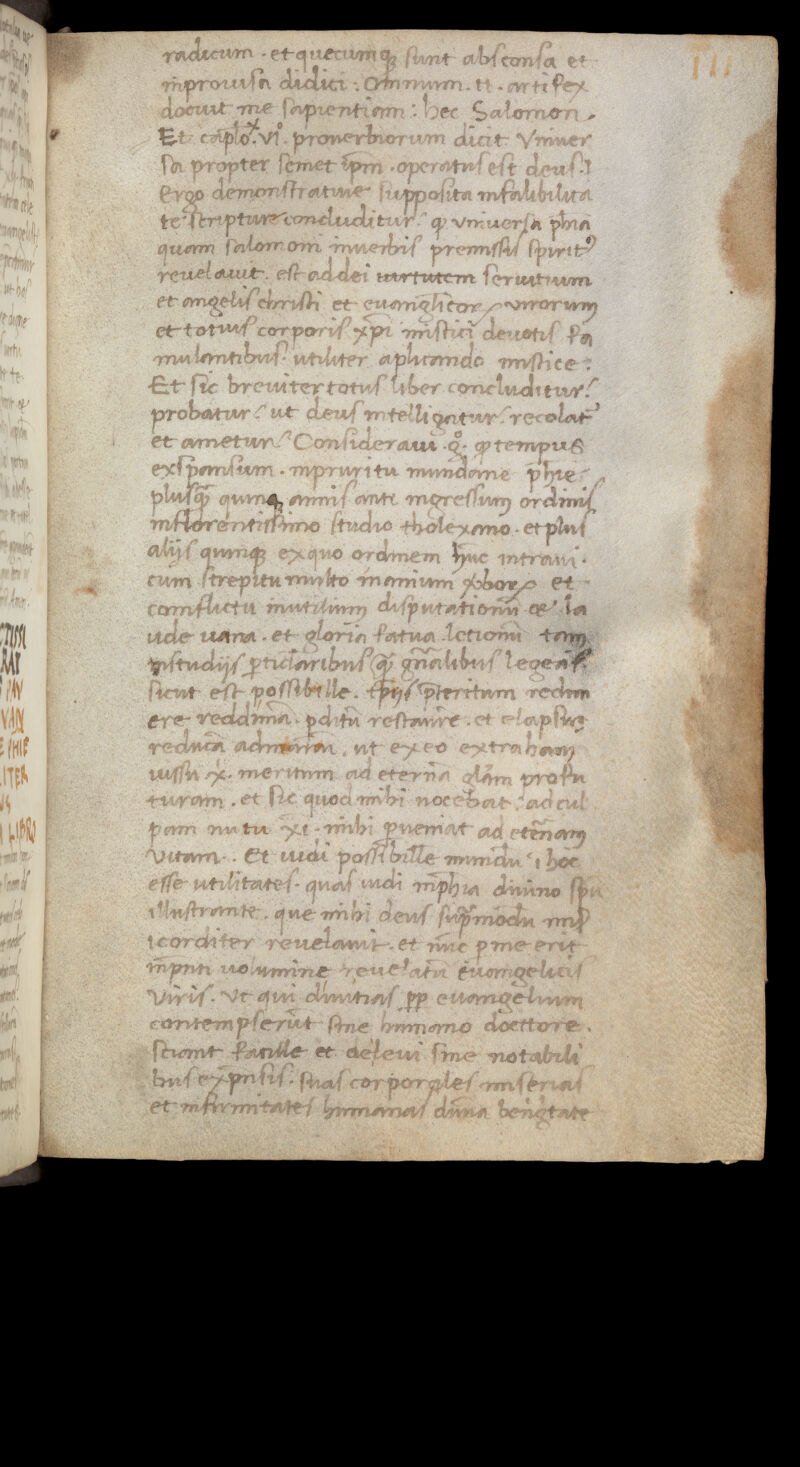 III
radicum . et quecumq; sunt absconsa et
improuisa didici : Omnium . n . artifex
docuit me sapientiam : hec Salomon .
Et caplo . xvi . prouerbiorum dicit Vniuer
sa propter semet ipm . operatus est deus . i
Ergo demonstratiue supposita infalibilita
te scripture concluditur / q vniuersa phia
quam salomoni inuerbis premissis spirit9
reuelauit . est ad dei uirtutem seruitium
et angelis christi et euanglicor virorum
et totius corporis xpi mistici deuotis fa
mulantibus . utiliter aplicando mistice :
Et sic breuiter totus liber concluditur /
probatur / ut deus intelligatur / recolat
et ametur / Consideraui . g . q tempus
exspansum . inpruritu mundane phie
plusq quinq annis ante ingressum ordinis
inflorentissimo studio tholexano . et plus
alijs quinq; ex quo ordinem hunc intraui .
cum strepitu multo inanium xbor et
comflictu inutilium disputationu de la
ude uana . et gloria fatua letionu tam
instudijs pticlaribus q gnalibus legeas
sicut est possibille . tpus pteritum redim
ere reddima . pditu restaure . et elapsum
reduca ad . ut ex eo extraham
iussu x . meritum ad eterna glam profu
turam . et sic quod mihi nocebat . ad cul
pam nutu xi . mihi pueniat ad eternam
vitam . Et uidi possibille mundu i hoc
esse utilitates . quas uidi inphia diuino spu
illustrante . que mihi deus supmodu mis
icorditer reuelauit . et nuc p me erit
inpnti uolumine reuelatu euangelicis
viris . Vt qui diuitias pp euangelium
contempserut sine humano doettore .
sciant facille et deleui sine notabili
bus expnsis . suas corporales miserias
et infirmitates humanas diuina benigtate